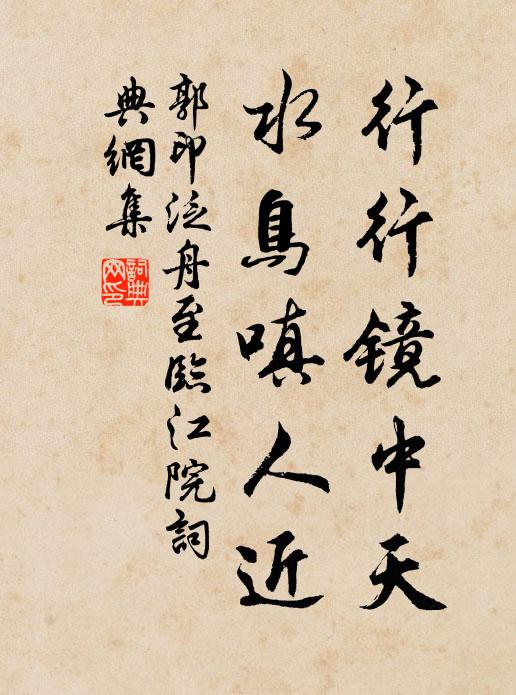 行行镜中天
水鳥嗔人近
郭印泛舟至臨江院詞
典網集
詞典
网印